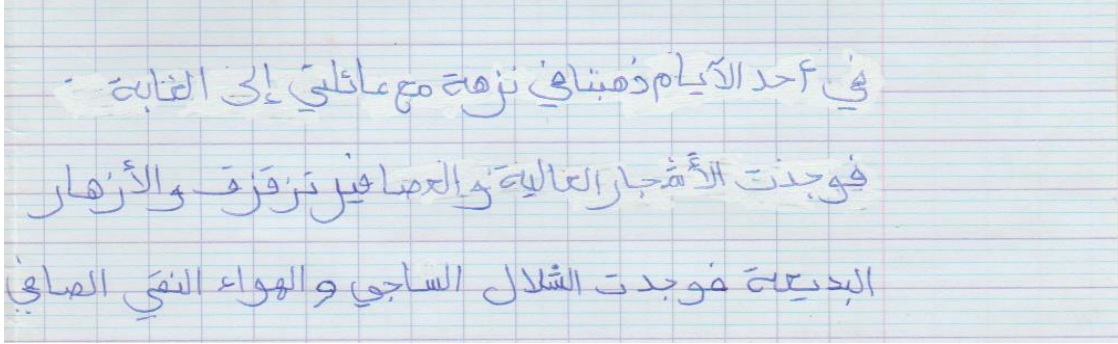 في أحد الأيام ذهبنا في نزهة مع عائلتي إلى الغابة
فوجدت الأشجار العالية والعصافير تزقزق والأزهار
البديعة فوجدت الشلال الساجي والهواء النقي الصافي